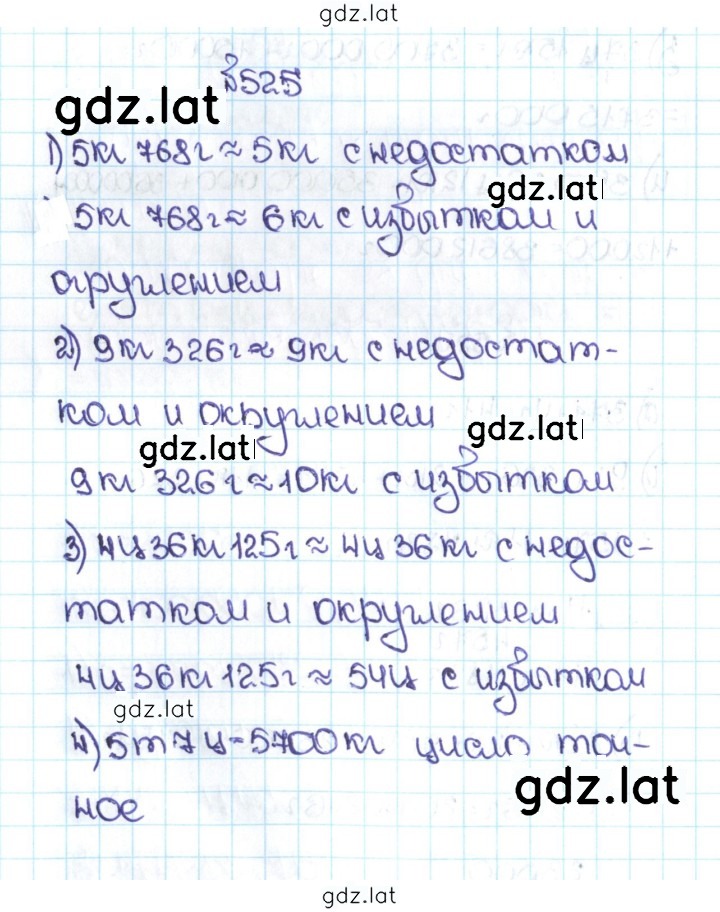 gdz.lat
№525
gdz.lat
1) 5кг 768г ≈ 5кг с недостатком
gdz.lat
5кг 768г ≈ 6кг с избытком и
округлением
2) 9кг 326г ≈ 9кг с недостат-
ком и округлением
gdz.lat
gdz.lat
9кг 326г ≈ 10кг с избытком
3) 4ц 36кг 125г ≈ 4ц 36кг с недос-
татком и округлением
4ц 36кг 125г ≈ 54ц с избытком
gdz.lat
4) 5т 7ц = 5700кг число точ-
gdz.lat
ное
gdz.lat